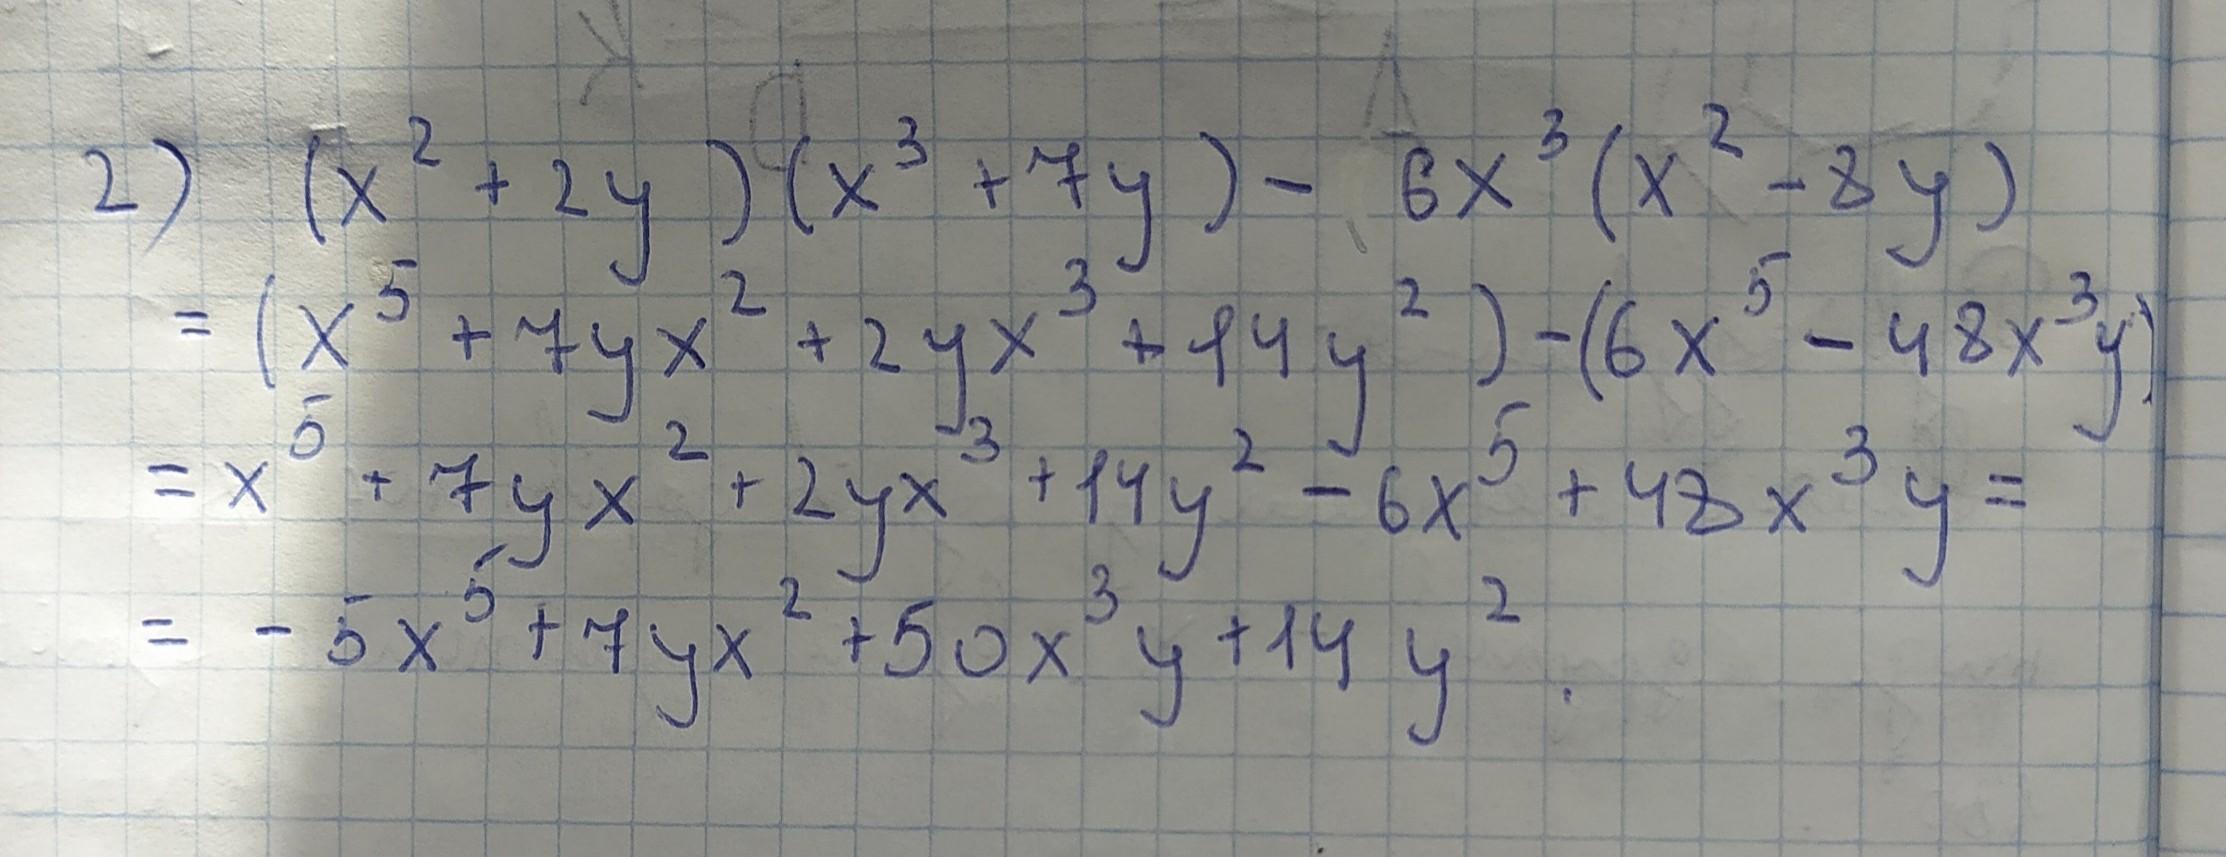 2) (x² + 2y)(x³ + 7y) - 6x³(x² - 8y)
= (x⁵ + 7yx² + 2yx³ + 14y²) - (6x⁵ - 48x³y)
= x⁵ + 7yx² + 2yx³ + 14y² - 6x⁵ + 48x³y =
= - 5x⁵ + 7yx² + 50x³y + 14y².